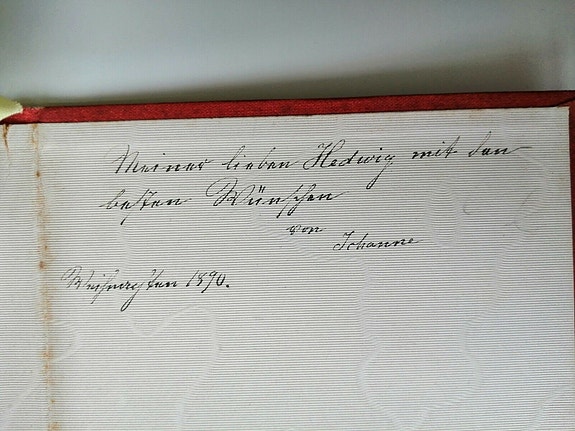 Meiner lieben Hedwig mit den
besten Wünschen
von
Johanne
Weihnachten 1890.